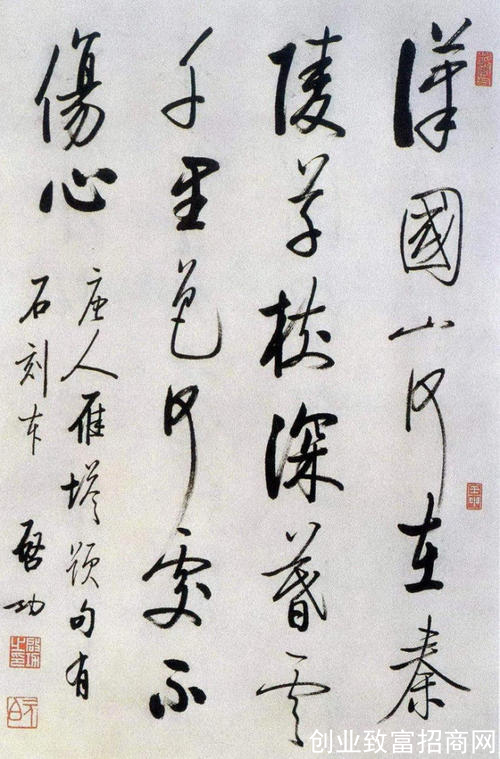 漢國山河在秦
陵草樹深暮雲
千里色何處不
傷心
唐人雁塔題句有
石刻本
啓功
创业致富招商网